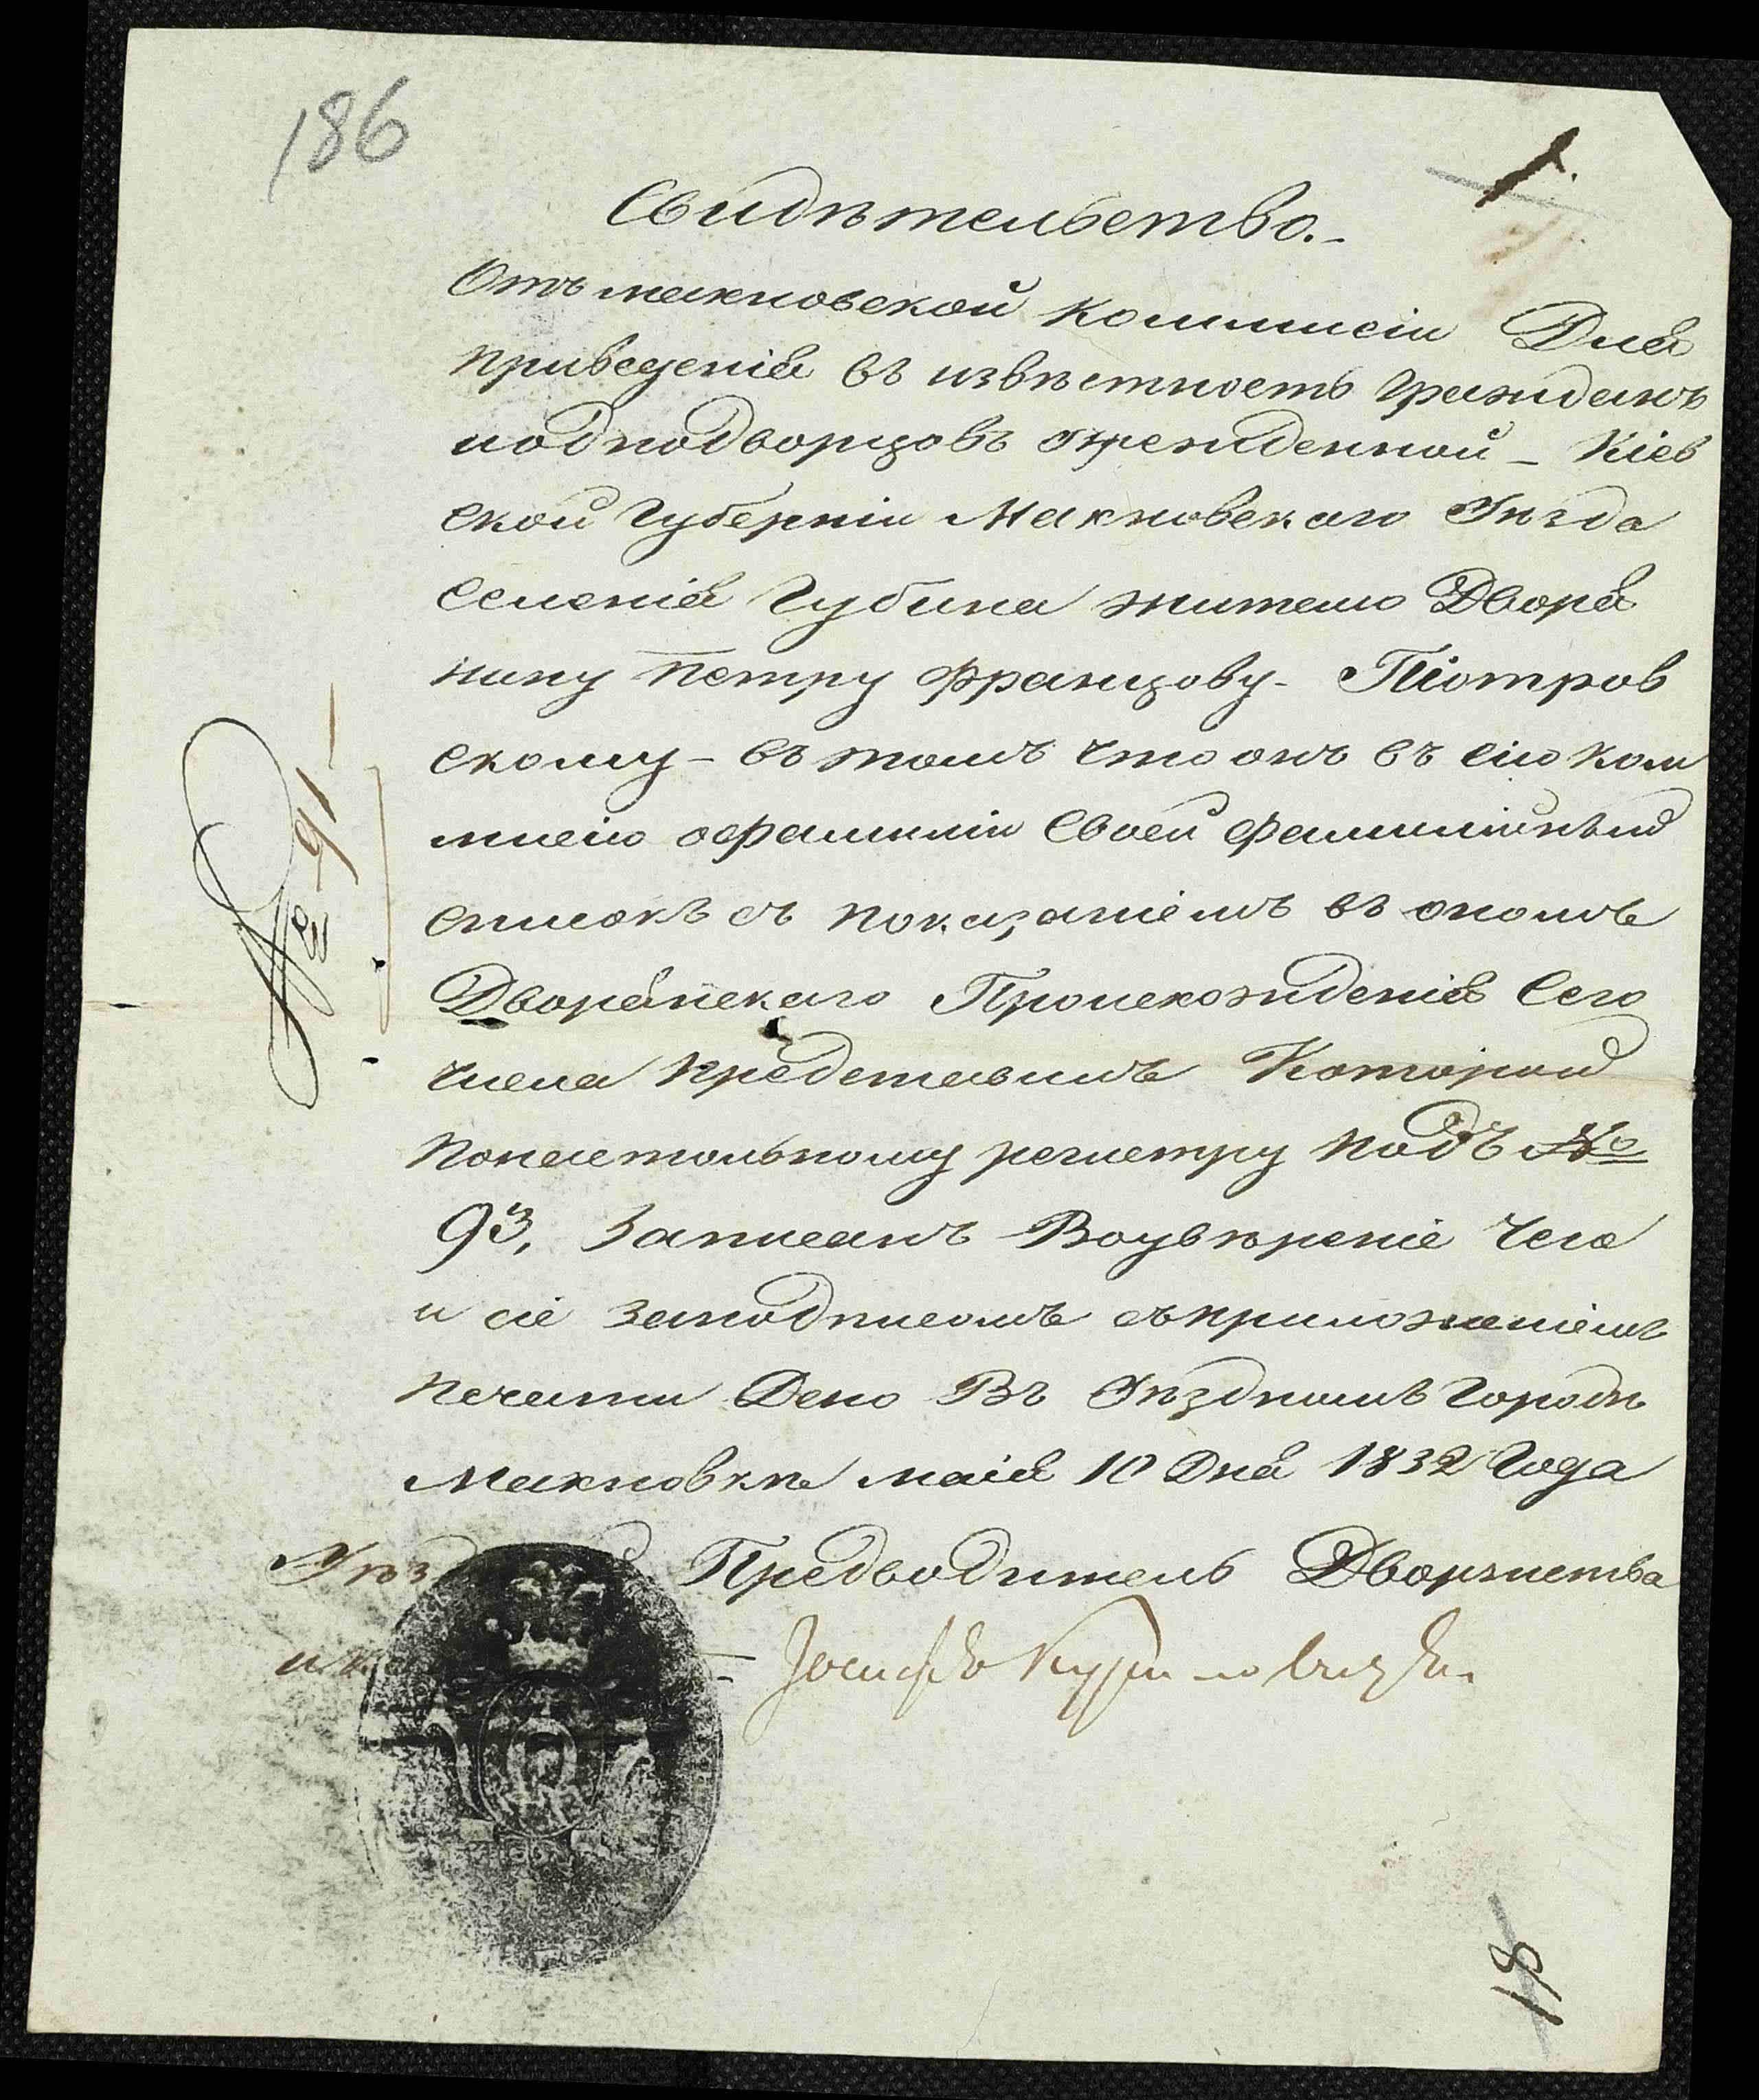 186
1.
Свидѣтельство.-
Отъ махновской Коммисіи Для
приведенія въ извѣстность Гражданъ
иодноdворцовъ Учрежденной - Кіев
ской Губерніи Махновскаго Уѣзда
Селенія Губина жителю Дворя
нину Петру Францову - Піотров
скому - въ томъ что онъ въ сію Ком
мисію офамиліи Своей Фамилійный
списокъ съ показаніемъ въ ономъ
Дворянскаго Происхождения Сего
числа представилъ Который
понастольному регистру подъ №
93, Записанъ Воувѣреніе Чего
и сіе заподписомъ съприложеніемъ
печати Дено Въ Уѣздномъ Городѣ
Махновкѣ маія 10 Дня 1832 Года
Уѣзд Предводитель Дворянства
и к
Іосифъ
№ 91
18